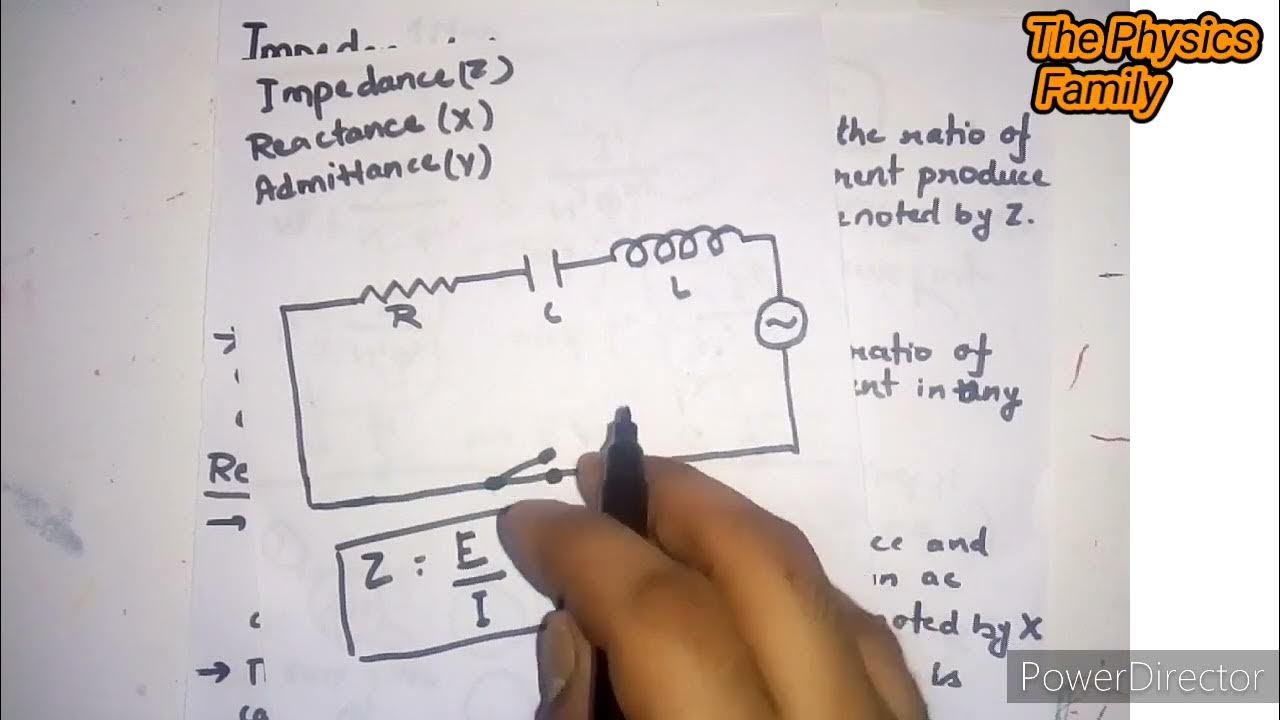 The Physics
Family
Impedance (Z)
Reactance (X)
Admittance (Y)
the ratio of
produce
by Z.
R
C
L
~
ratio of
in any
Re
Z = E
I
and
in ac
by X
is
PowerDirector